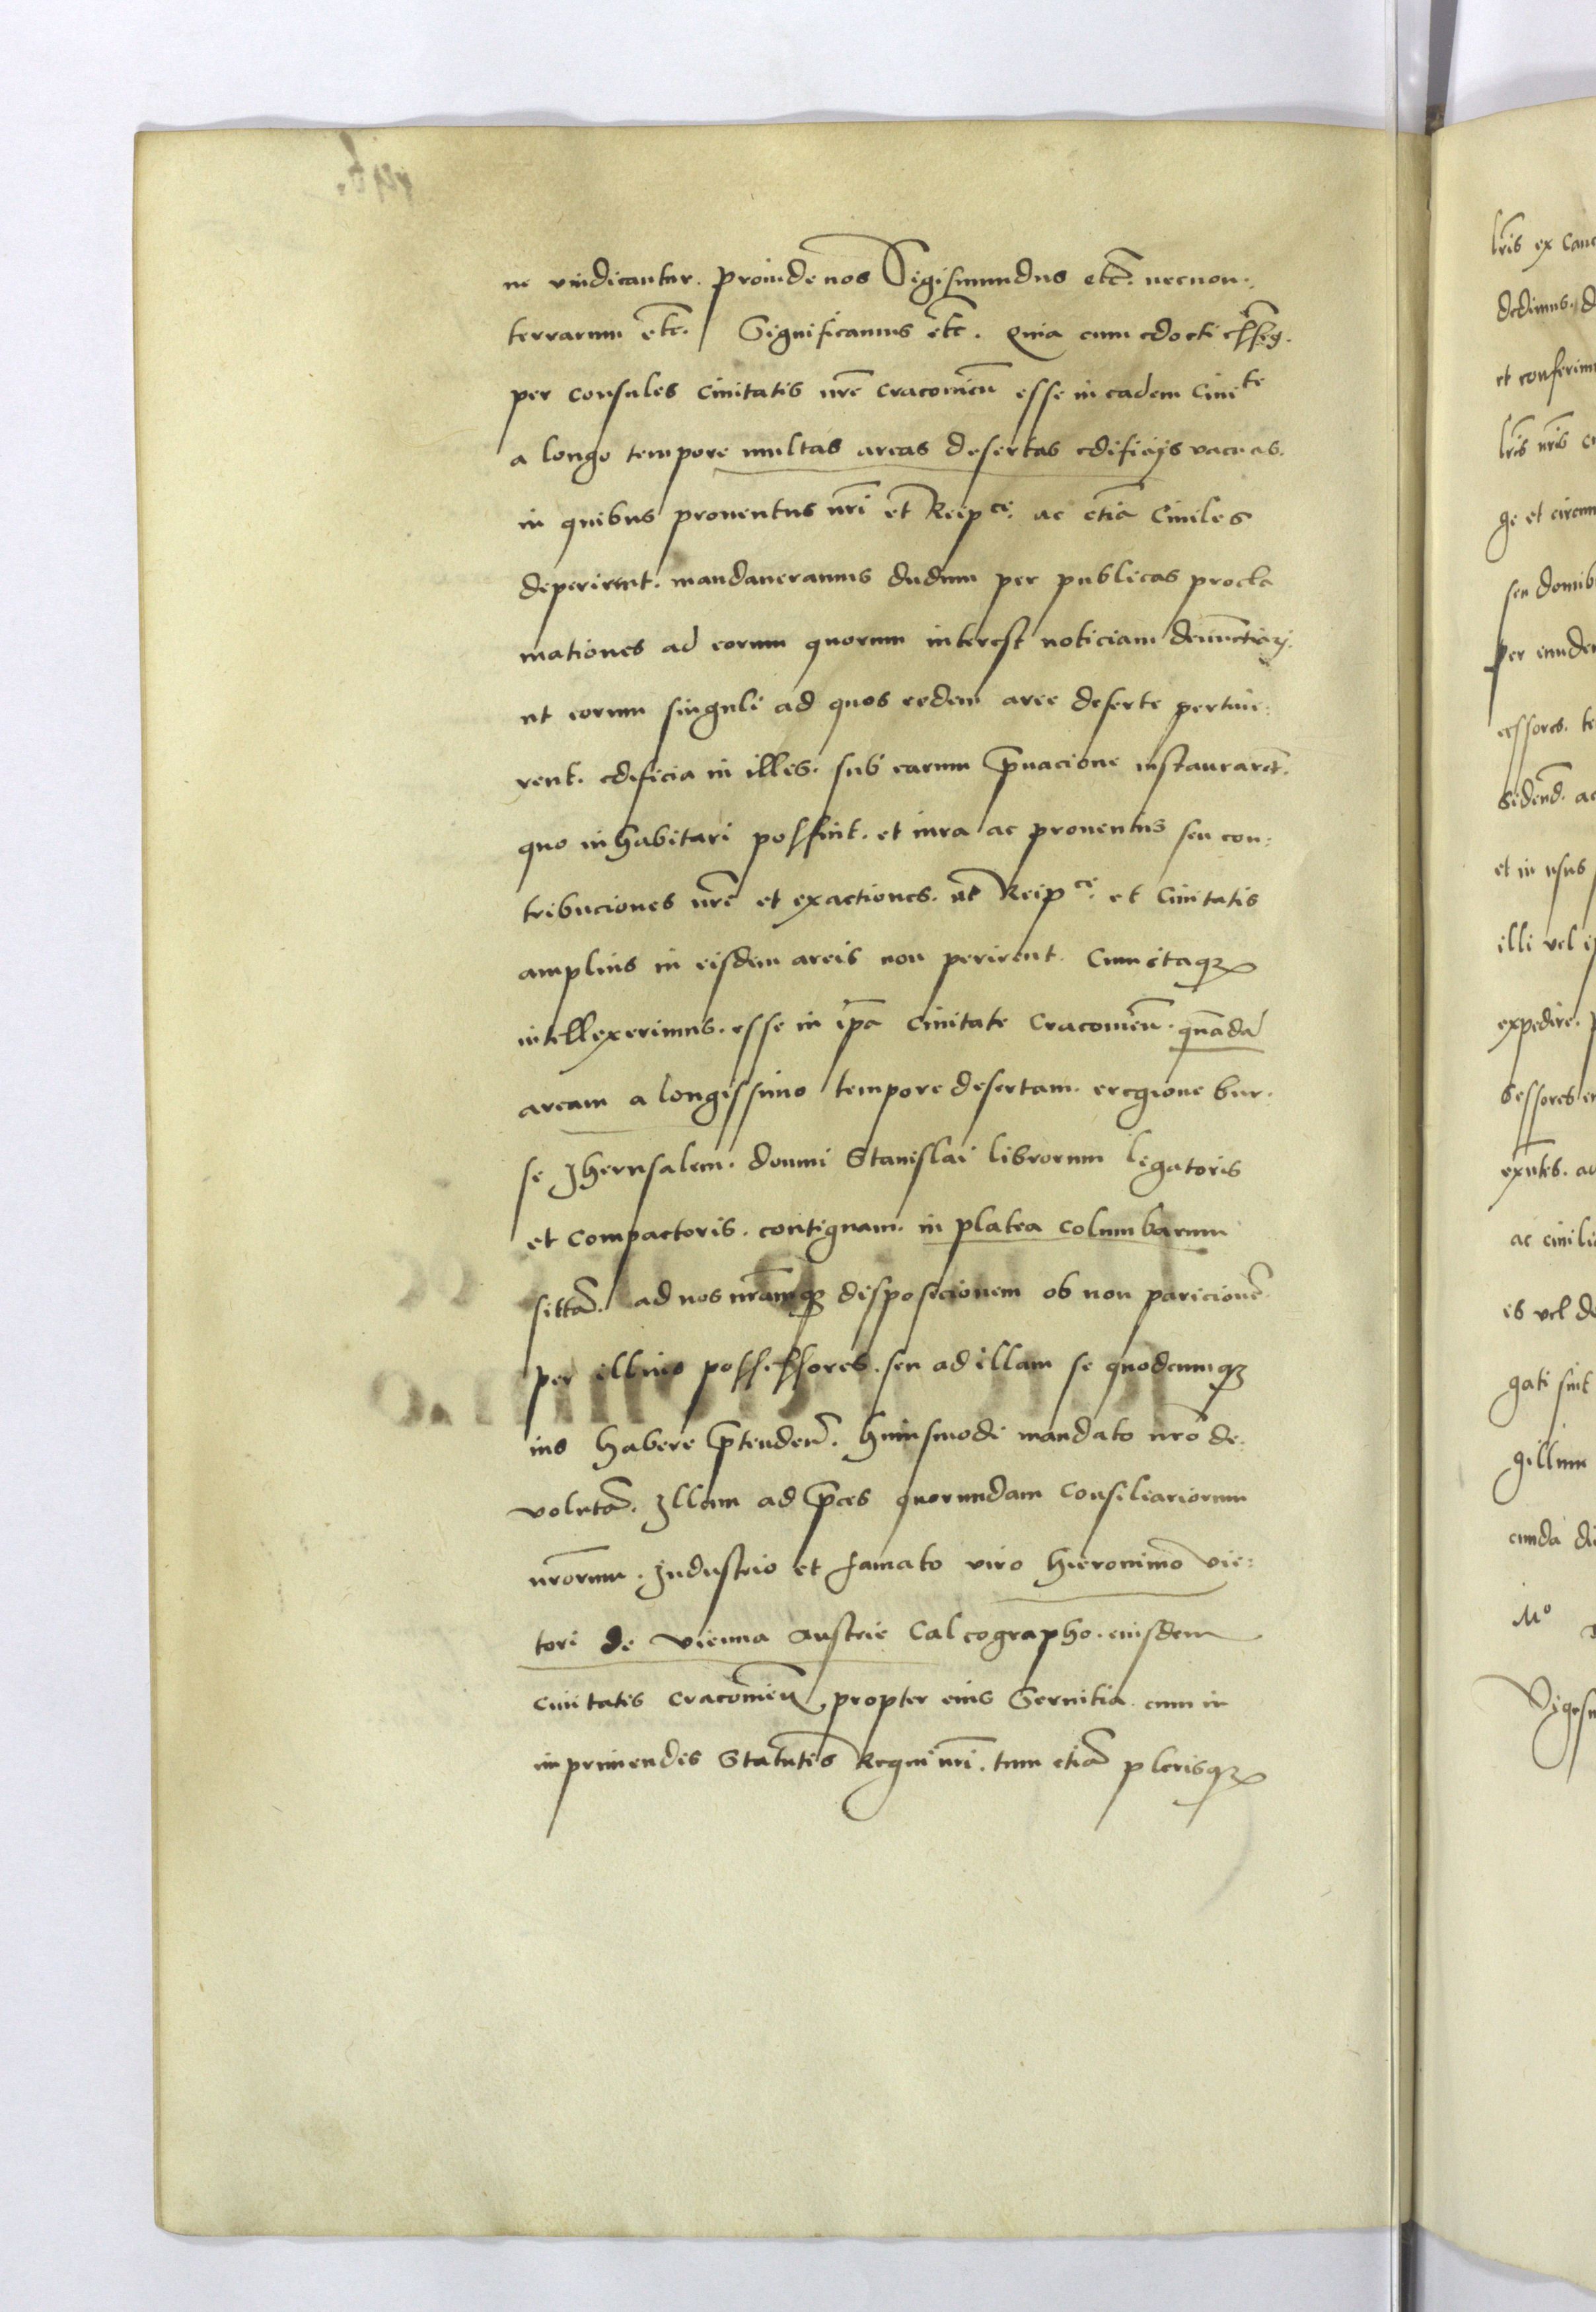 ne vindicantur. proinde nos Sigismundus etc. necnon.
terrarum etc. Significamus etc. Quia cum edocti
per consules Ciuitatis nrē Cracouieñ esse in eadem Ciuite
a longo tempore multas areas desertas edificijs vacuas.
in quibus prouentus nrī et Reipce. ac etiā Ciuiles
deperirent. mandaueramus dudum per publicas procla
mationes ad eorum quorum interest noticiam denunctiarj.
ut eorum singuli ad quos eedem aree deserte pertine:
rent. edificia in illis. sub earum pruacione instaurarēt.
quo inhabitari possint. et iura ac prouentus seu con:
tribuciones nrē et exactiones. ut Reipce. et Ciuitatis
amplius in eisdem areis non perirent. Cum itaq3
intellexerimus. esse in ipā Ciuitate Cracouieñ. quādā
aream a longissimo tempore desertam. eregione bur:
se Jherusalem. domui Stanislai librorum legatoris
et compactoris. contiguam. in platea columbarum
sittā. ad nos nrāmq3 disposicionem ob non paricionē
per illius possessores. seu ad illam se quodcumq3
ius habere prtendeñ. huiusmodi mandato nrō de:
volutā. Illam ad prces quorundam Consiliariorum
nrōrum. Industrio et famato viro Hieronimo vie:
tori de vienna Austrie Calcographo. eiusdem
ciuitatis Cracouieñ, propter eius Seruitia. cum in
inprimendis Statutis Regni nrī. tum etiā plerisq3
lrīs ex Canc
dedimus. d
et conferim
lrīs nrīs
ge et circum
seu domib
per eunde
essores. te
sidend. ac
et in usus
illi vel
expedire.
sessores
ac ciuili
is vel de
gati sint
gillum
cunda di
Mo